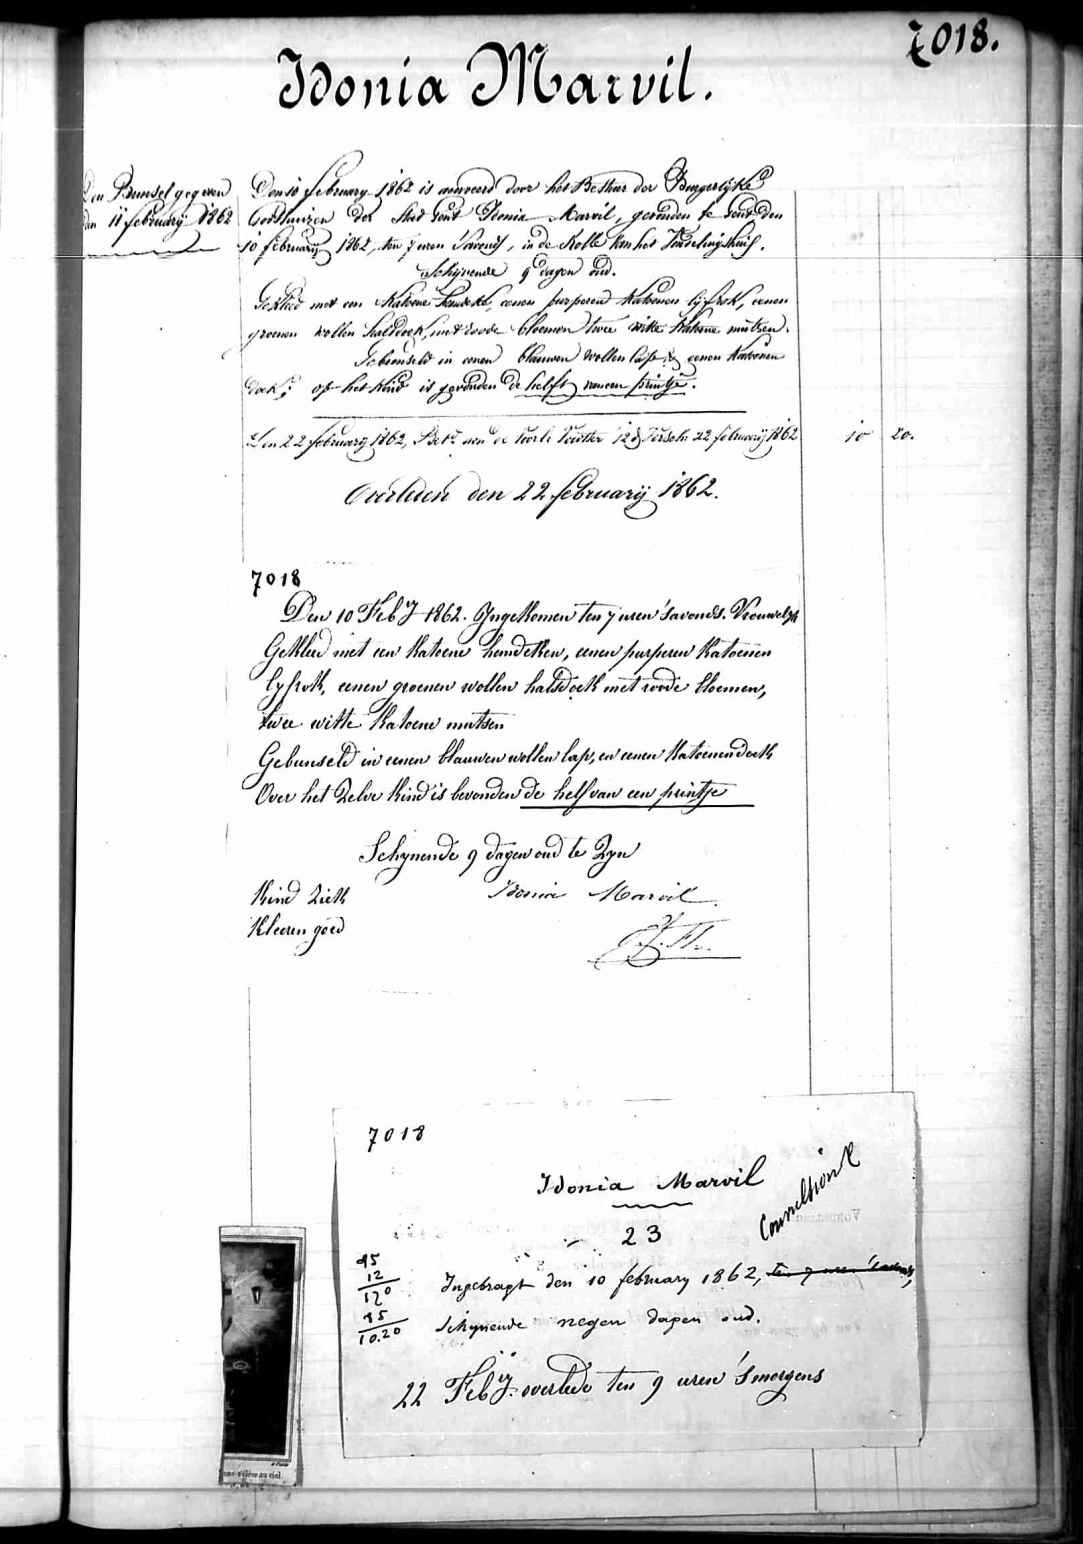 7018.
Idonia Marvil.
Den Bunsel gegeven
den 11 february 1862
Den 10 february 1862 is aenveerd door het Bestuur der Burgerlijke
Godshuizen der Stad Gent Idonia Marvil, gevonden te Gent den
10 february 1862, ten 7 uren 's avonds, in de Rolle van het Vondelingshuis.
Schijnende 9 dagen oud.
Gekleed met een katoene hemdeke, eenen purperen katoenen lijfrok, eenen
groenen wollen halsdoek, met roode bloemen twee witte katoene mutsen.
Gebunseld in eenen blauwen wollen lap & eenen katoenen
doek; op het kind is gevonden de helft van een printje.
Den 22 february 1862, aen de 12 22 february 1862 10 20.
Overleden den 22 february 1862.
7018
Den 10 Feby 1862. Ingekomen ten 7 uren 's avonds. Vrouwelyk
Gekleed met een katoene hemdeken, eenen purperen katoenen
lyfrok, eenen groenen wollen halsdoek met roode bloemen,
twee witte katoene mutsen
Gebunseld in eenen blauwen wollen lap, en eenen katoenen doek
Over het zelve kind is bevonden de helf van een printje
Schynende 9 dagen oud te zyn
Kind ziek Idonia Marvil
Kleeren goed
7018
Idonia Marvil
23
85
12
170
85
10.20
Ingebragt den 10 february 1862, ten 7 uren 's avonds,
schynende negen dagen oud.
22 Feby. overlede ten 9 uren 's morgens
au ciel